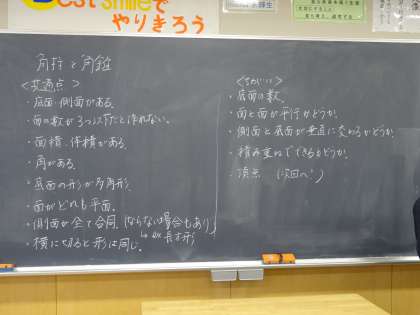 Best Smileで
やりきろう
角柱と角錐
<共通点>
・底面・側面がある。
・面の数が3つ以下だと作れない。
・面積・体積がある。
・角がある。
・底面の形が多角形。
・面がどれも平面。
・側面が全て合同。(ならない場合もあり)
↳ex 長方形
・横に切ると形は同じ。
<ちがい>
・底面の数。
・面と面が平行かどうか。
・側面と底面が垂直に交わるかどうか。
・積み重ねでできるかどうか。
・頂点 (次回へ)